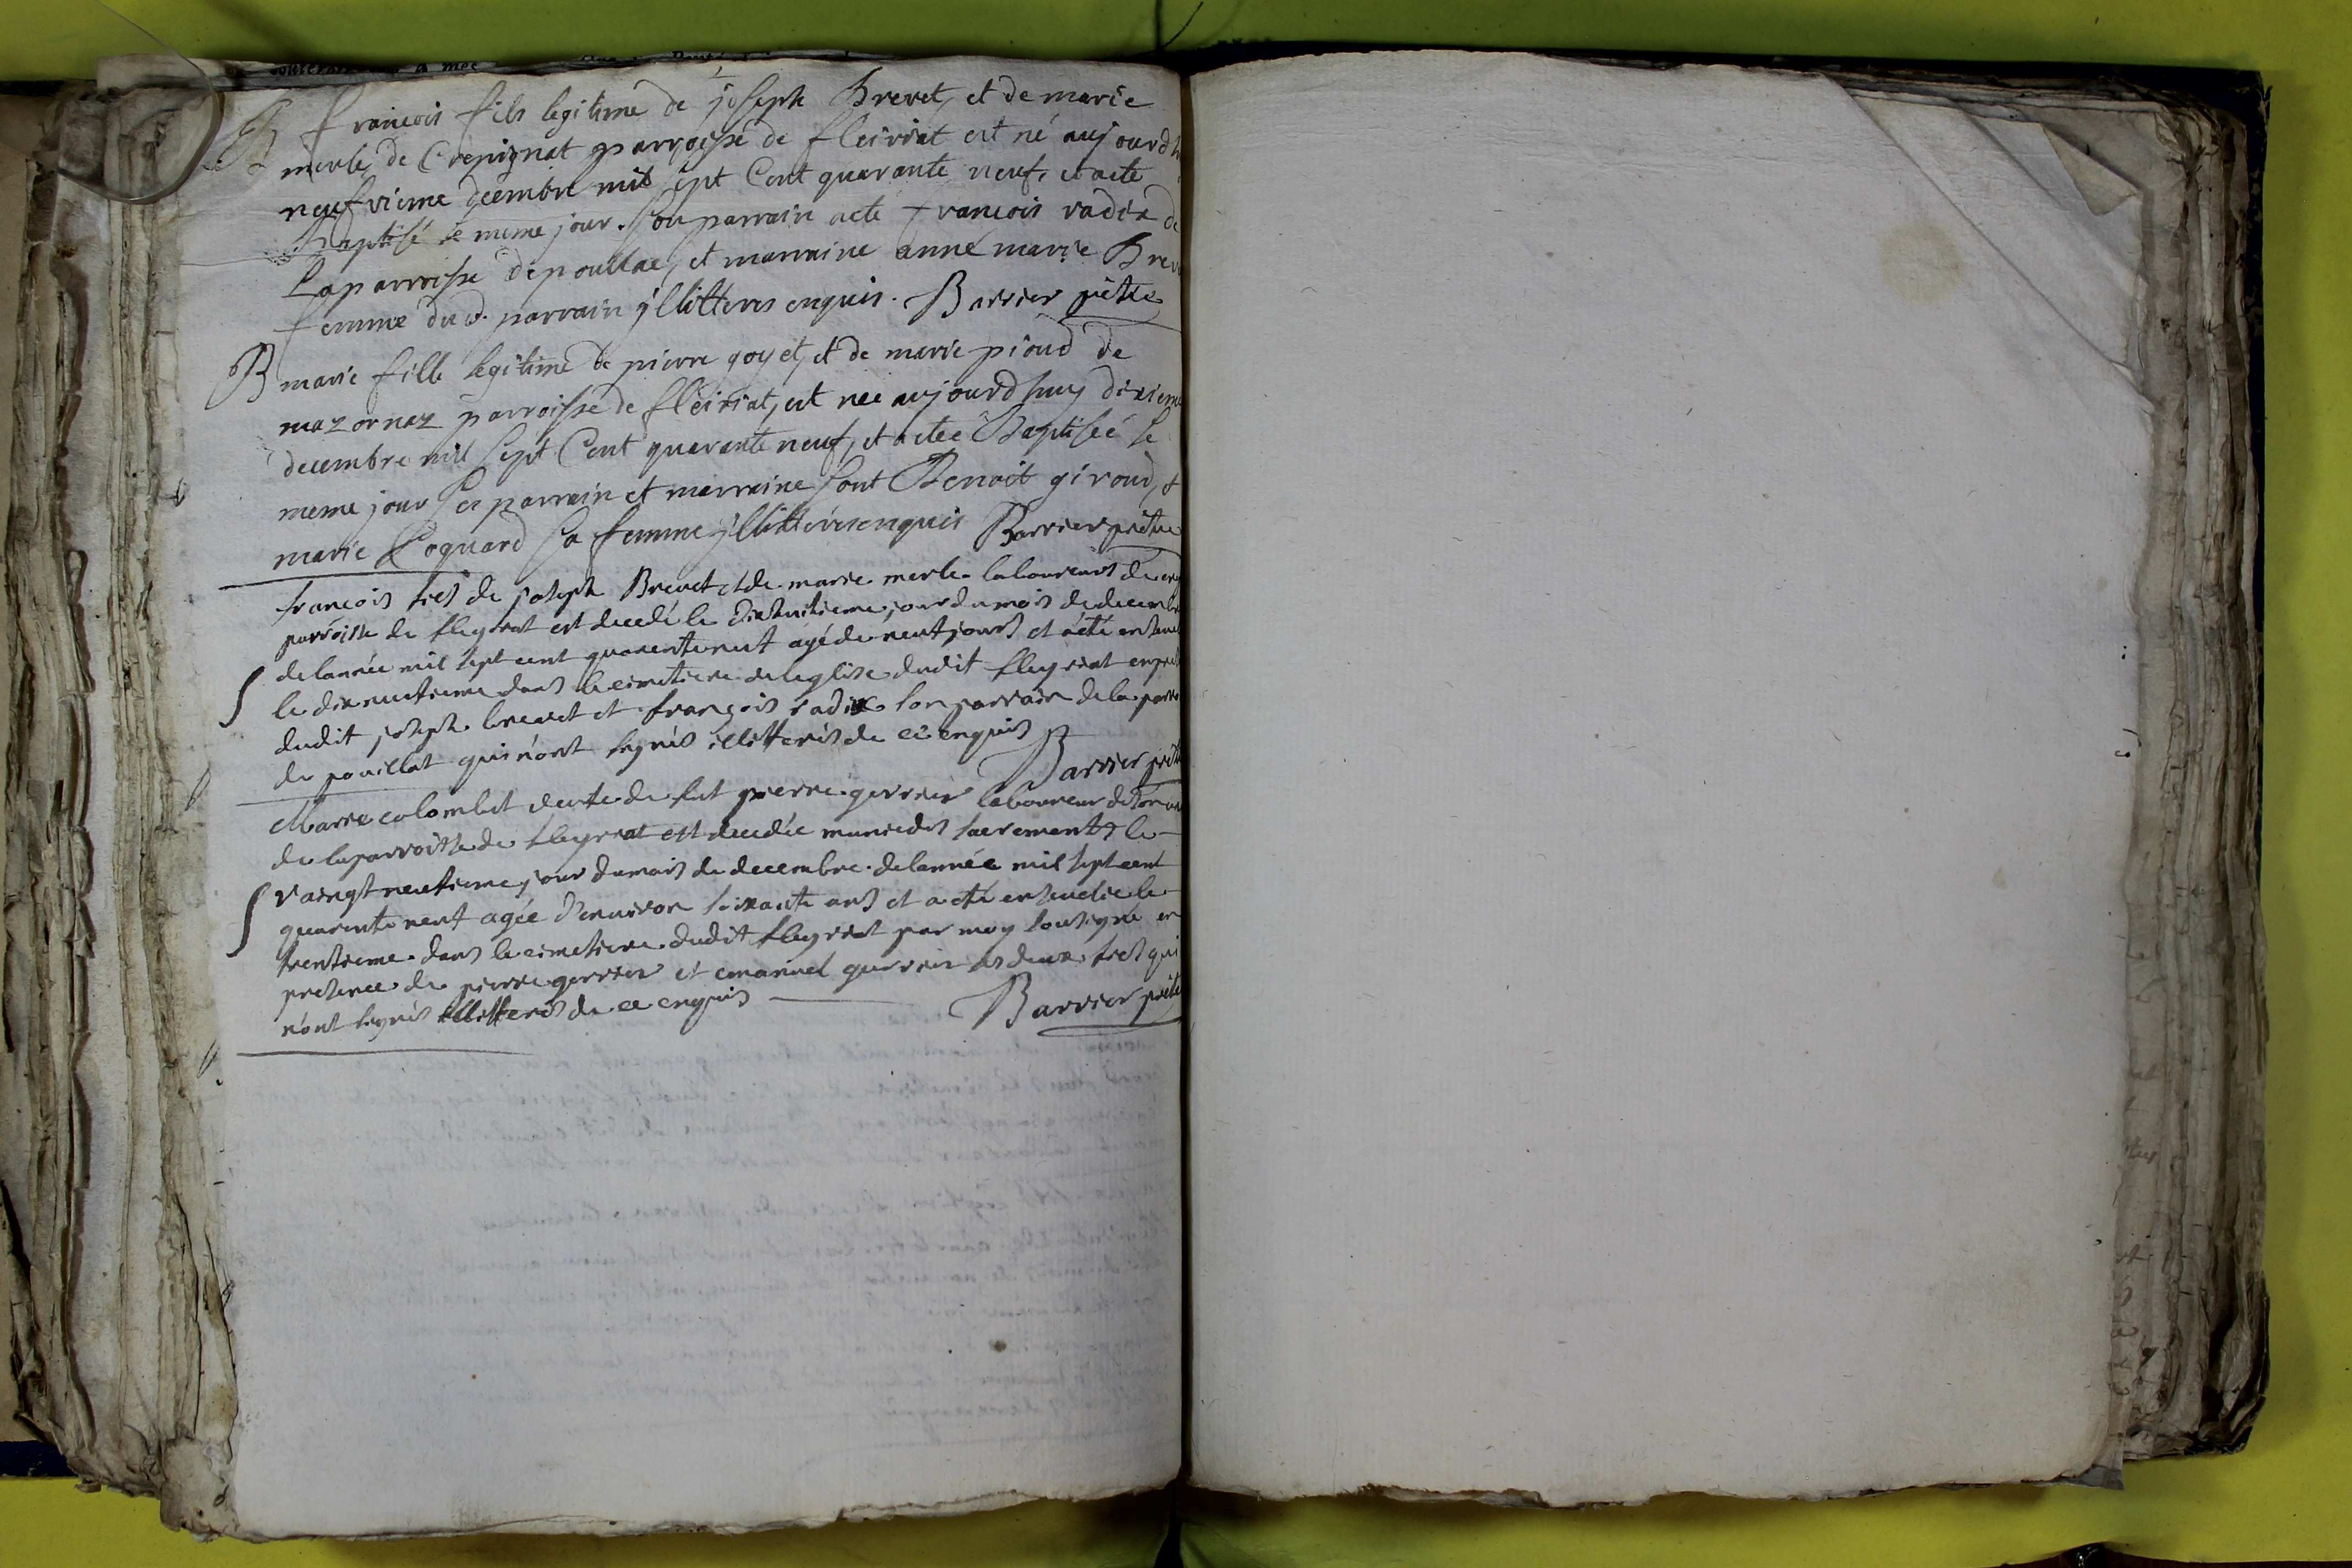 B francois fils legitime de joseph Brevet, et de marie
merle, de Crepignat parroisse de fleiriat est né aujourdh
neufvieme decembre mil sept Cent quarante neuf, et a eté
Baptisé le meme jour. Son parrain a eté francois radix de
La parroisse de poullac, et marraine anne marie Brev
femme dud. parrain jllitteres enquis. Barrier pretre
B marie fille legitime de pierre goyet, et de marie pioud de
mazornaz parroisse de fleiriat, est nee aujourdhuy dixieme
decembre mil sept Cent quarante neuf, et a eteé Baptiseé le
meme jour ses parrain et marraine sont Benoit giroud, et
marie Coquard sa femme jllitteres enquis Barrier pretre
francois fies de joseph Brevet et de marie merle laboureurs de
parroisse de fleyriat est decedé le dixhuitieme jour du mois de decembre
de lannée mil sept cent quarenteneuf agé de neuf jours et a été enseueli
S le dixneufieme dans le cimetiere de leglise dudit fleyriat en
dudit joseph brevet et françois radix son parrain de la parr
de pouillat qui n'ont signés illitterés de ce enquis
Barrier pretre
Marie colombet veufe de fut pierre gerrier laboureur de
de la parroisse de fleyriat est decedée munie des sacrements le
vaingt neufieme jour du mois de decembre de lannée mil sept cent
S quarente neuf agée d'environ soixante ans et a eté ensevelie le
trentieme dans le cimetiere dudit fleyriat par moy soussigné en
presence de pierre gerrier et emanuel guerrier ses deux fies qui
n'ont signés illitterés de ce enquis
Barrier pretre